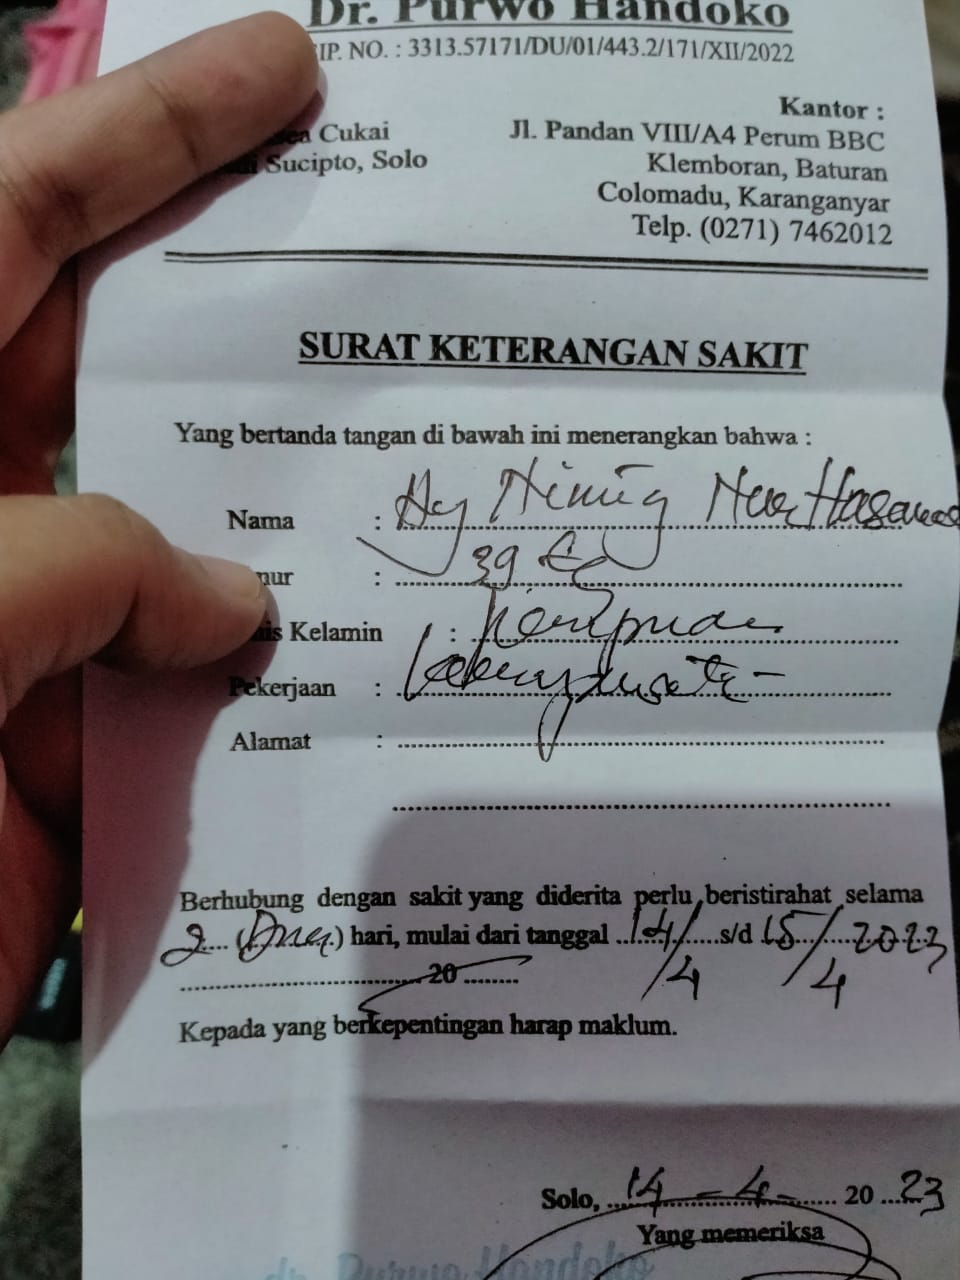 Dr. Purwo Handoko
IP. NO. : 3313.57171/DU/01/443.2/171/XII/2022
Kantor :
Cukai
Jl. Pandan VIII/A4 Perum BBC
Sucipto, Solo
Klemboran, Baturan
Colomadu, Karanganyar
Telp. (0271) 7462012
SURAT KETERANGAN SAKIT
Yang bertanda tangan di bawah ini menerangkan bahwa :
Nama : Ny Nur
mur : 39
Kelamin : Perempuan
Pekerjaan :
Alamat :
Berhubung dengan sakit yang diderita perlu beristirahat selama
2 (Dua) hari, mulai dari tanggal 14/4 s/d 15/4 2023
20
Kepada yang berkepentingan harap maklum.
Solo, 14 - 4 - 20 23
Yang memeriksa
dr. Purwo Handoko